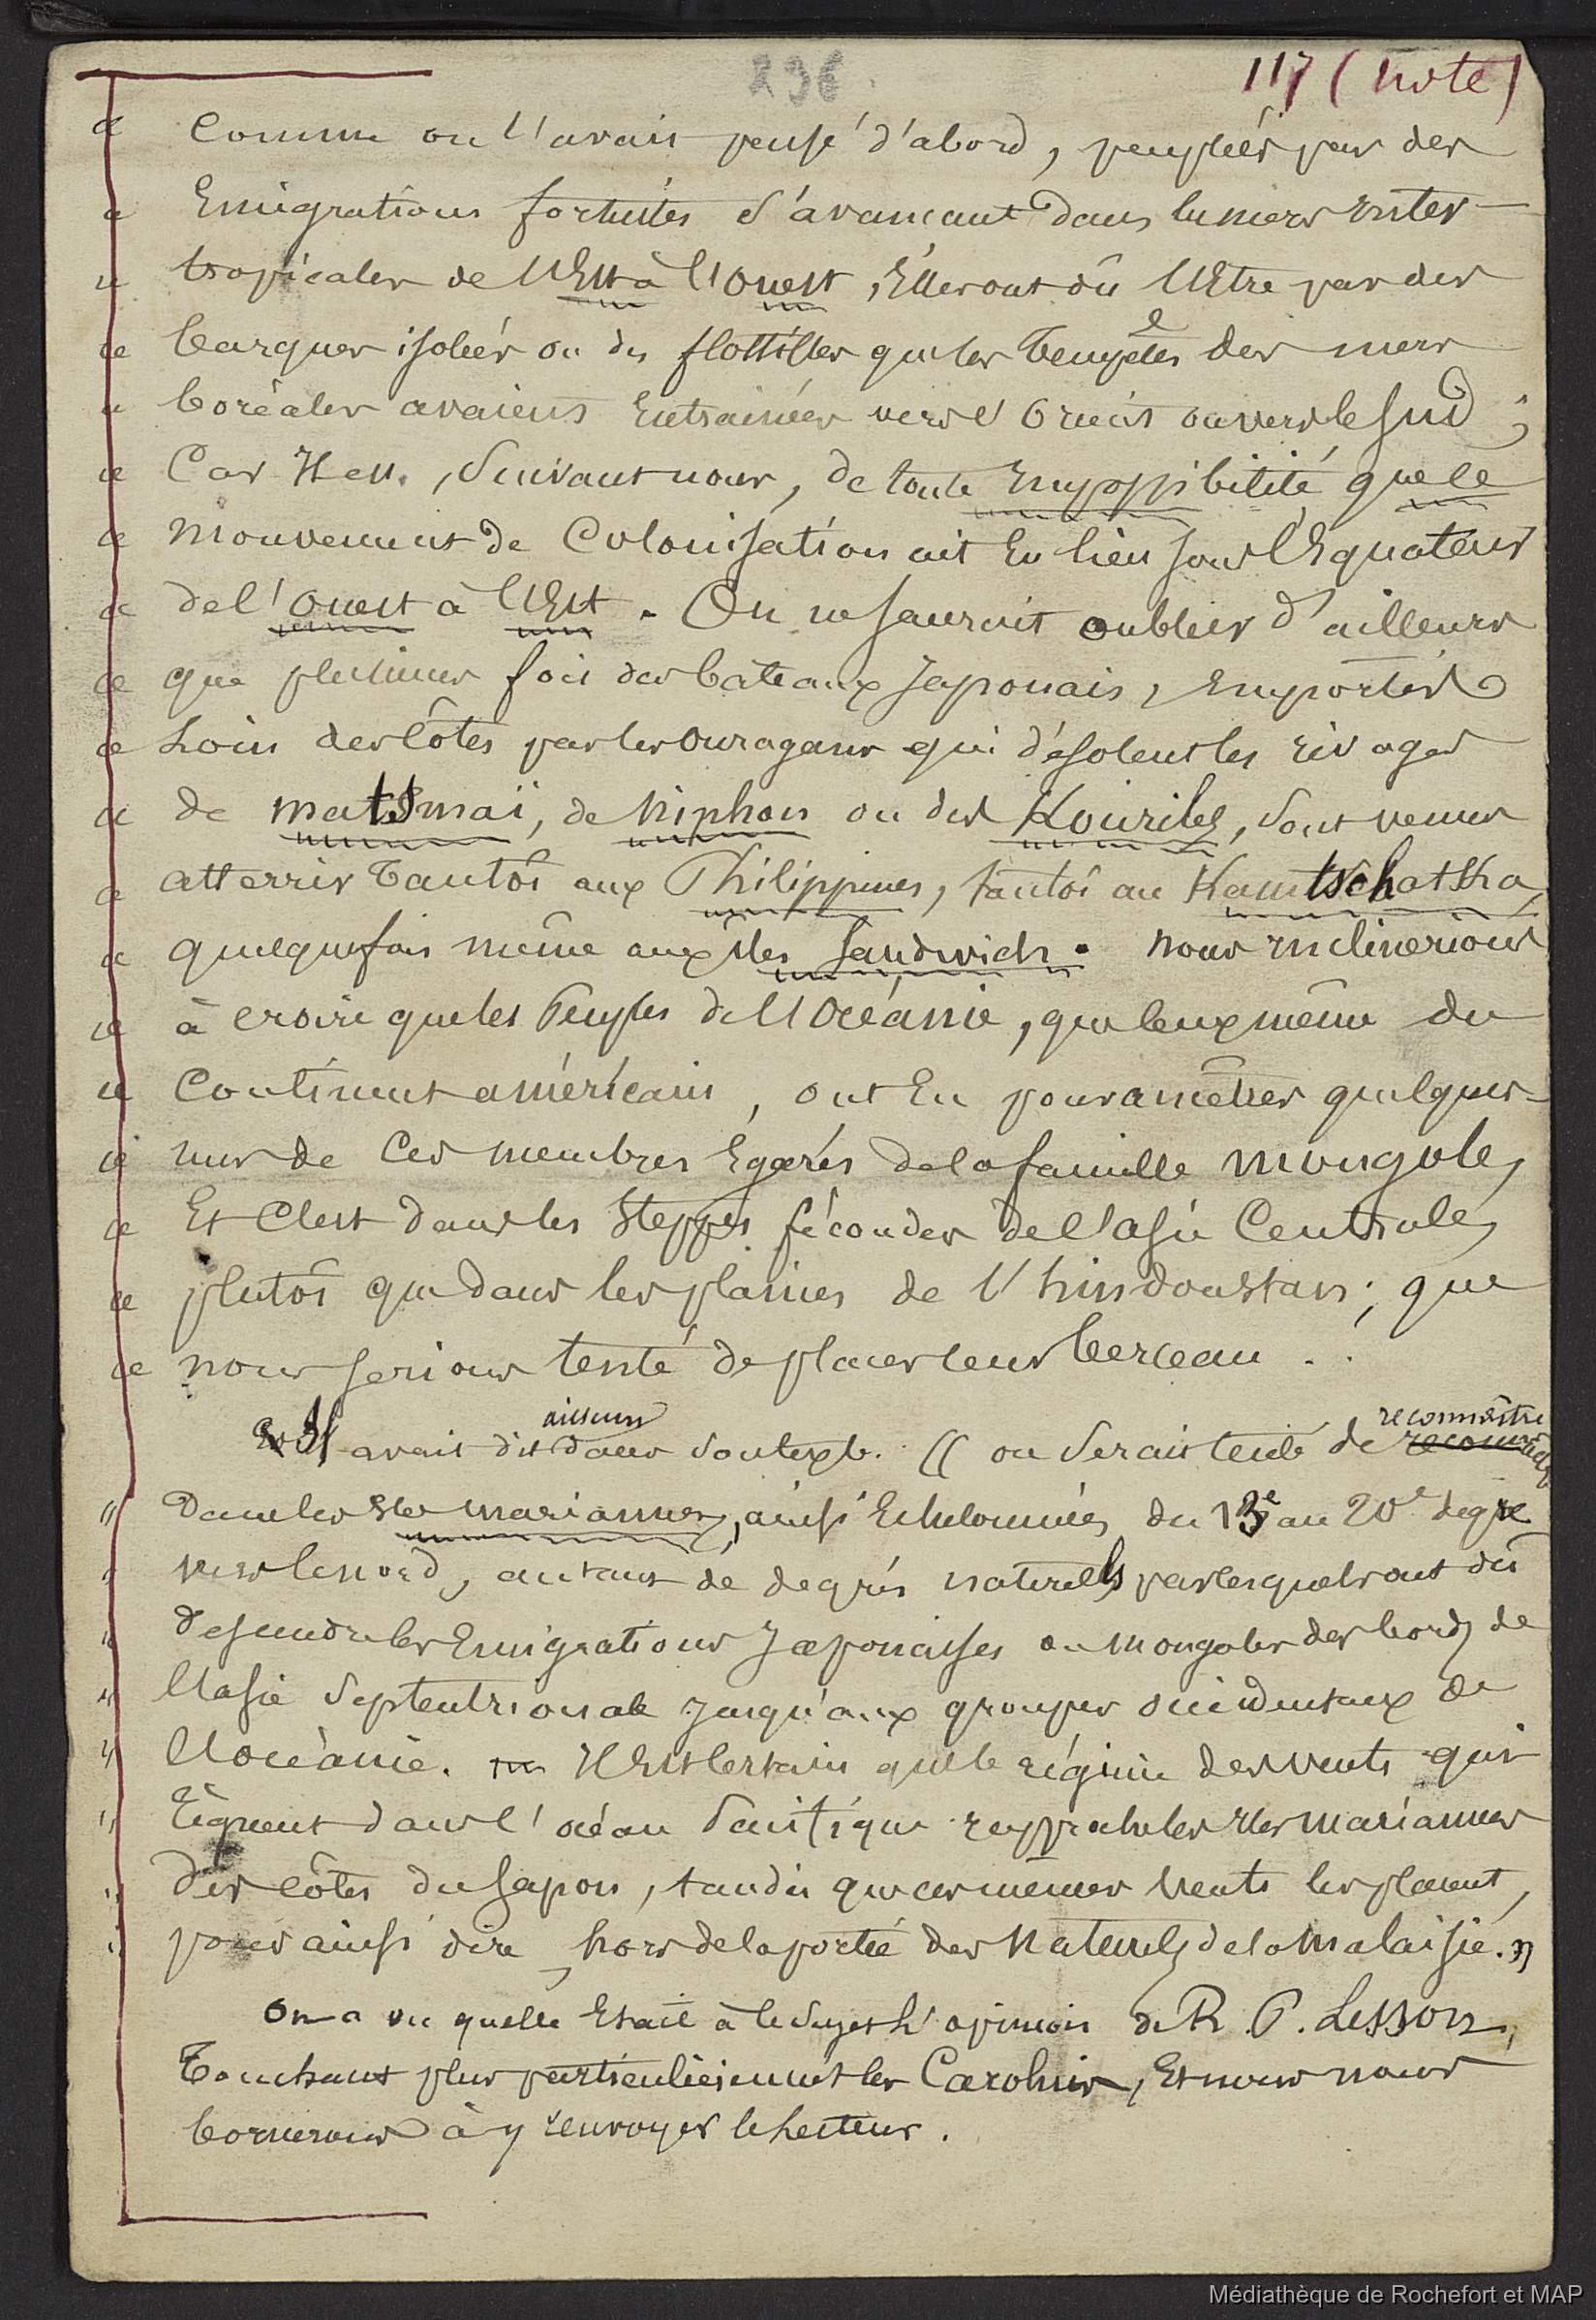 236
117 (note)
« Comme on l'avait pensé d'abord, peuplées par des
« Emigrations fortuites s'avancant dans les mers inter-
« tropicales de l'Est à l'ouest, Elles ont dû l'Etre par des
« barques isolées ou des flottilles que les tempêtes des mers
« boréales avaient Entrainées vers l'orient ou vers le sud ;
« Car Il est, suivant nous, de toute impossibilité que le
« mouvement de Colonisation ait Eu lieu sous l'Equateur
« de l'ouest à l'Est. On ne saurait oublier d'ailleurs
« que plusieurs fois des bateaux japonais, emportés
« Loin des côtes par les ouragans qui désolent les rivages
« de matsmaï, de niphon ou des Kouriles, sont venus
« atterrir tantôt aux Philippines, tantôt au Kamtschatka,
« quelquefois même aux îles Sandwich. nous inclinerions
« à croire que les Peuples de l'Océanie, que ceux même du
« Continent américain, ont Eu pour ancêtres quelques-
« uns de Ces membres Egarés de la famille mongole,
« Et C'est dans les steppes fécondes de l'asie Centrale,
« plutôt que dans les plaines de l'hindoustan, que
« nous serions tenté de placer leur berceau . .
Il avait dit ailleurs dans son texte. (( on serait tenté de reconnaître
" Dans les Iles mariannes, ainsi Echelonnées du 13e au 20e degré
" vers le nord, autant de degrés naturels par lesquels ont dû
" descendre les Emigrations Japonaises ou mongoles des bords de
" l'asie septentrionale jusqu'aux groupes occidentaux de
" l'océanie. Il Est Certain que le régime des vents qui
" règnent dans l'océan Pacifique rapproche les Iles mariannes
" des côtes du Japon, tandis que ces mêmes vents les placent,
" pour ainsi dire, hors de la portée des naturels de la malaisie. ))
On a vu quelle Etait à ce sujet l'opinion de R. P. Lesson,
Touchant plus particulièrement les Carolines, Et nous nous
bornerons à y renvoyer le Lecteur.
Médiathèque de Rochefort et MAP